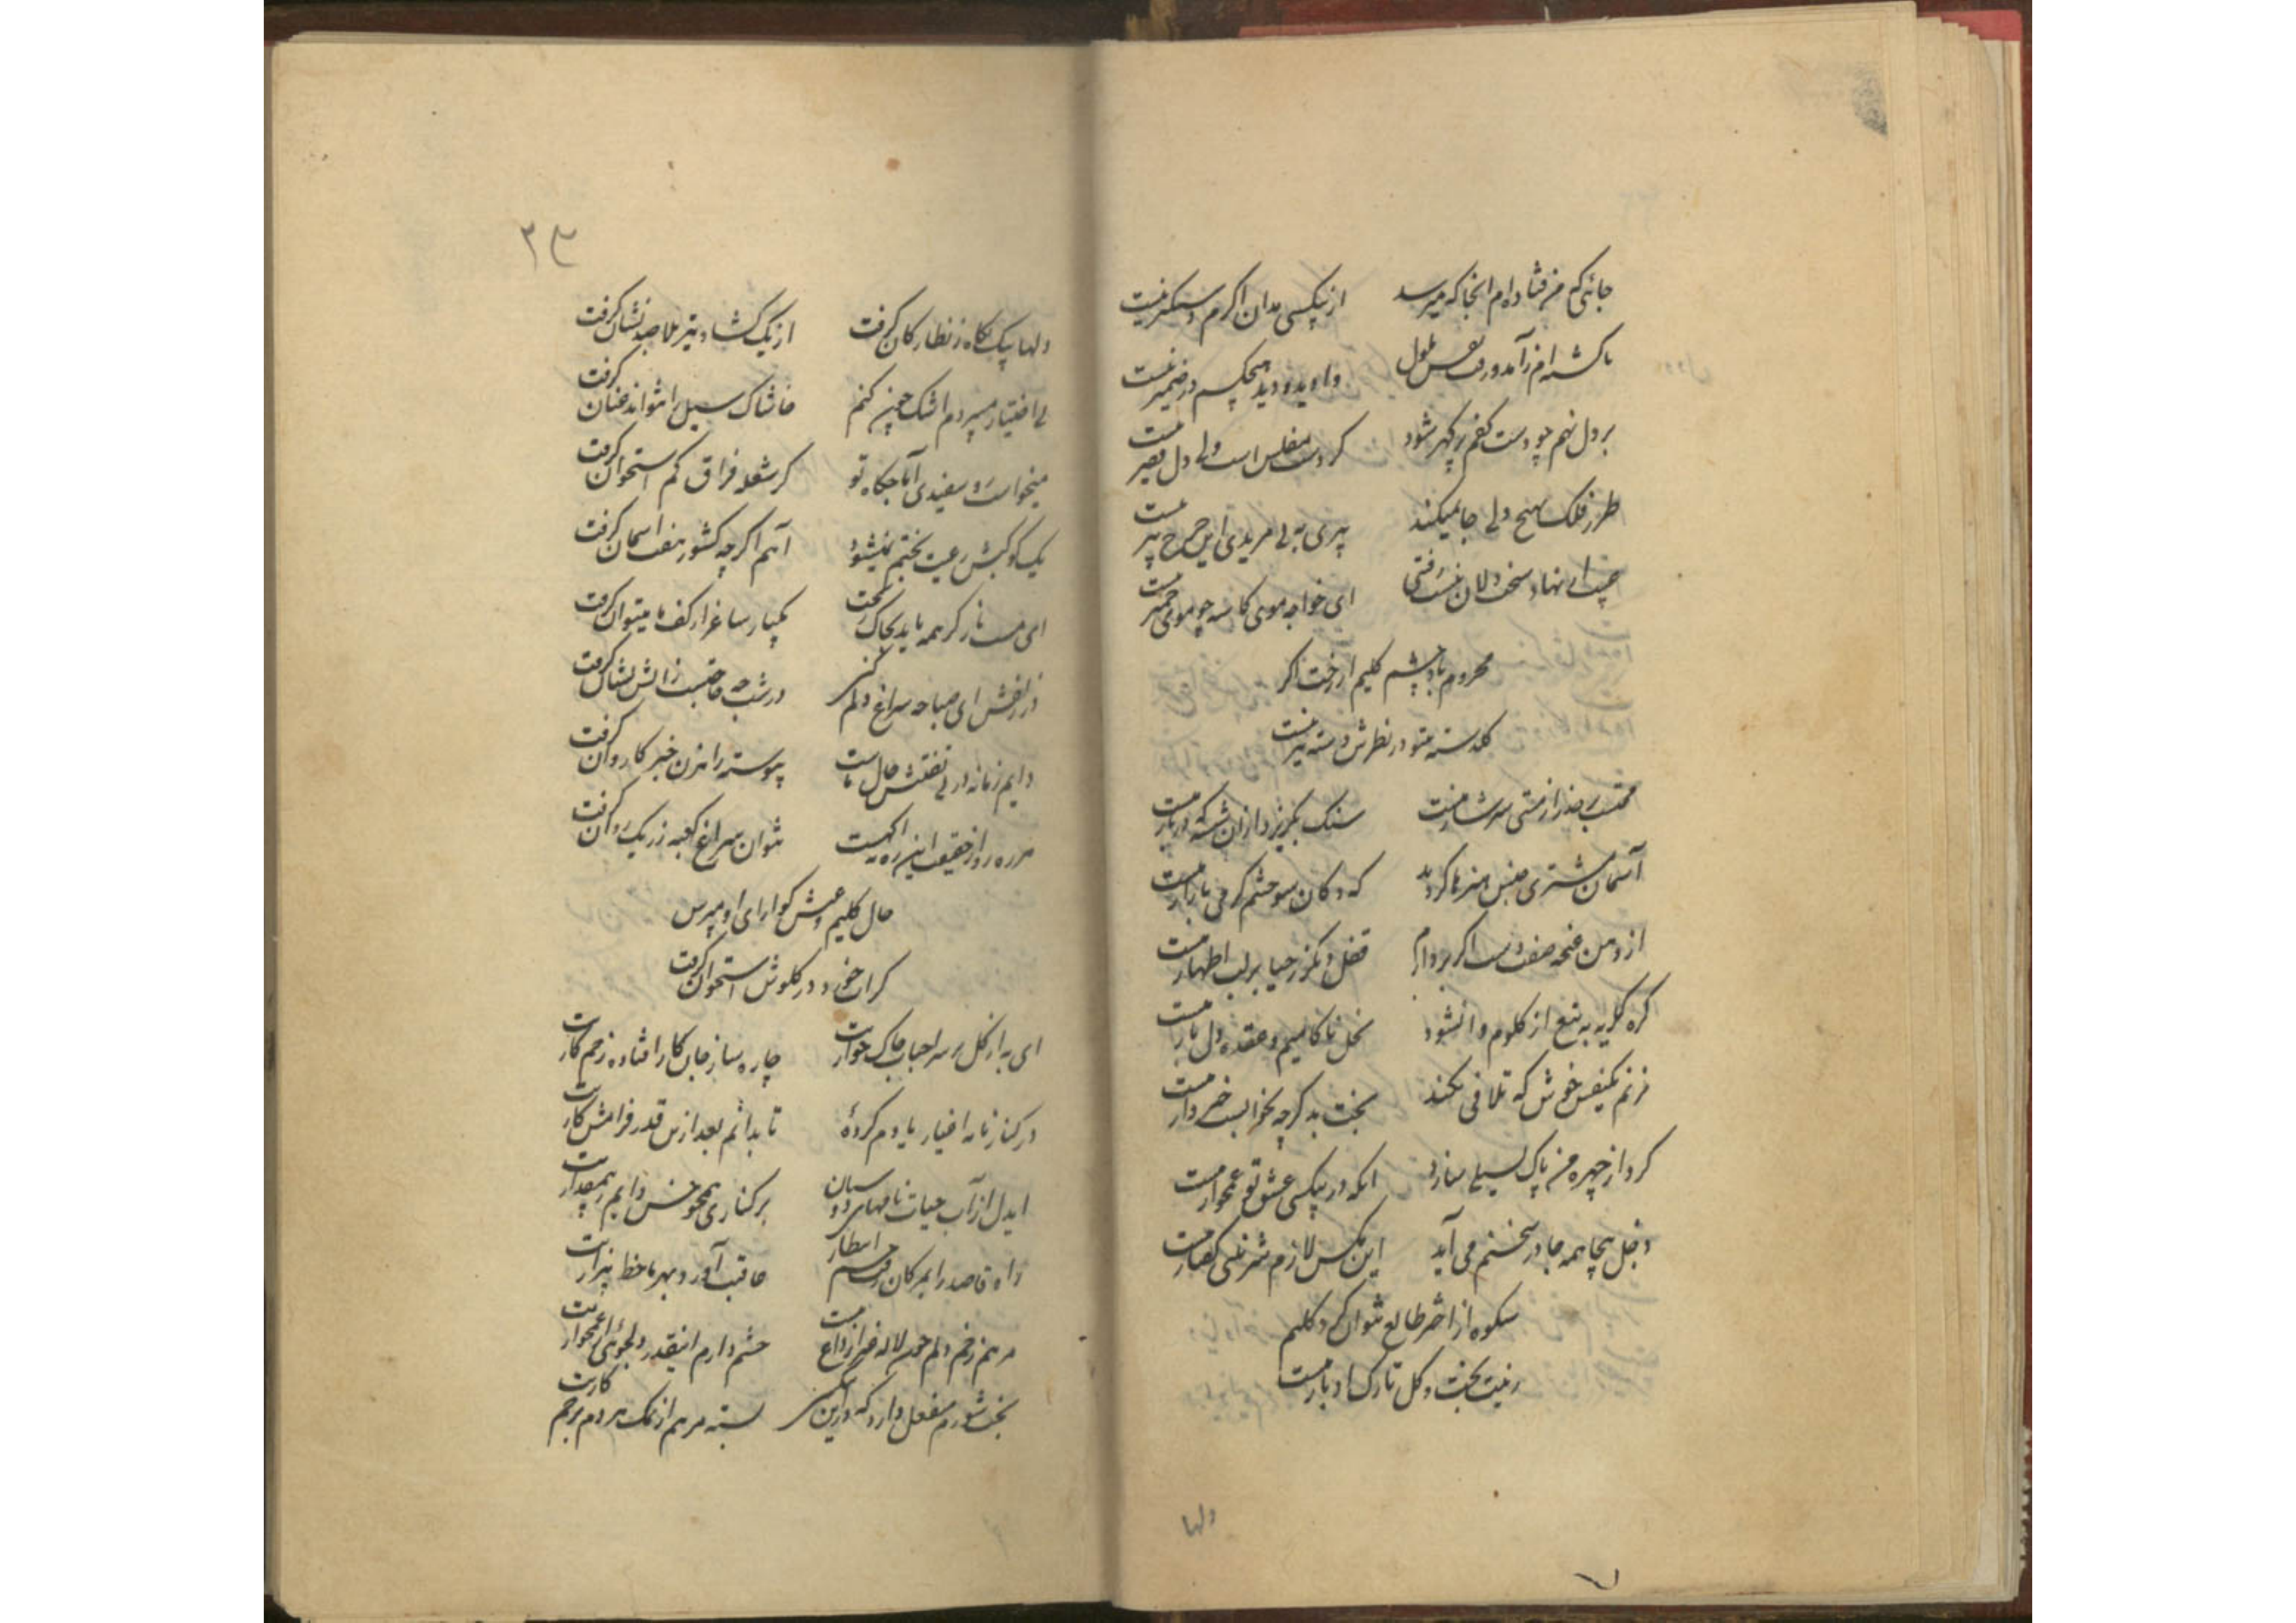 جائی که من فتاده‌ام انجا که میرسد از بیکسی مدان اگرم دستگیر نیست
باکس نه ام زآمد و رفت نفس ملول وا دید و دید هیچکسم در ضمیر نیست
بر دل نهم چو دست کفم پر گهر شود کر دست مفلس است ولی دل فقیر نیست
طرز فلک بهیچ دلی جا نمیکند پیری به بی مریدی این چرخ پیر نیست
نهاد سخت دلان ای خواجه موی کاسه چو موی خمیر نیست
محروم باد چشم کلیم از رخت اگر
کلدسته بیتو در نظرش دسته تیر نیست
محتسب بر حذر از مستی سرشار منست سنک بگریزد ازان شیشه که دربار منست
آسمان مشتری جنس هنرها کردید که دکان سوختنم کرمی بازار منست
از دهن غنچه صفت کر بردارم قفل دیگر ز حیا بر لب اظهار منست
کره کریه به تیغ از کلویم وا نشود نخل ناکامیم و عقده دل بار منست
نزنم یکنفس خوش که تلافی نکند بخت بد کرچه بخوابست خبردار منست
کرد از چهره من پاک بسیلی سازد انکه در بیکسی عشق تو غمخوار منست
دخل بیجا همه جا در سخنم می آید این مکس لازم شیرینی کفتار منست
شکوه از اختر طالع نتوان کرد کلیم
زینت بخت و کل تارک ادبار منست
دلها

۲۳
دلها بیک نکاه ز نظارکان کرفت از یک کشاد تیر بلا صد نشان کرفت
بی اختیار میبردم اشک چون کنم خاشاک سیل را نتواند عنان کرفت
میخواست رو سفیدی آماجکاه تو کر شعله فراق کم استخوان کرفت
یک کوکبش رعیت بختم نمیشود آهم اکرچه کشور هفت اسمان کرفت
ای مست ناز کر همه باید بخاک ریخت یکبار ساغر از کف ما میتوان کرفت
در زلفش ای صبا چه سراغ دلم کنی در شب چه حاجتست ز اتش نشان کرفت
دایم زمانه در پی تفتیش حال ماست پیوسته راهزن خبر کاروان کرفت
هر ره رو از حقیقت این ره اکه نیست نتوان سراغ کعبه ز ریک روان کرفت
حال کلیم و عیش کوارای او مپرس
کر آب خورد در کلویش استخوان کرفت
ای به از کل بر سر احباب خاک خواریت چاره ساز جان کار افتاده زخم کاریت
در کنار نامه اغیار یادم کردهٔ تا بدانم بعد ازین قدر فرامش کاریت
ایدل از آب حیات نامهای دوستان بر کناری همچو خس دایم ز بیمقداریت
راه قاصد را بمژکان رفتم انتظار عاقبت آورد بهر ما خط بیزاریت
مرهم زخم دلم چون لاله غیر از داغ نیست چشم دارم اینقدر دلجوئی از غمخواریت
بخت شورم منفعل دارد که در این بیکسی بسته مرهم از نمک هر دم بزخم کاریت